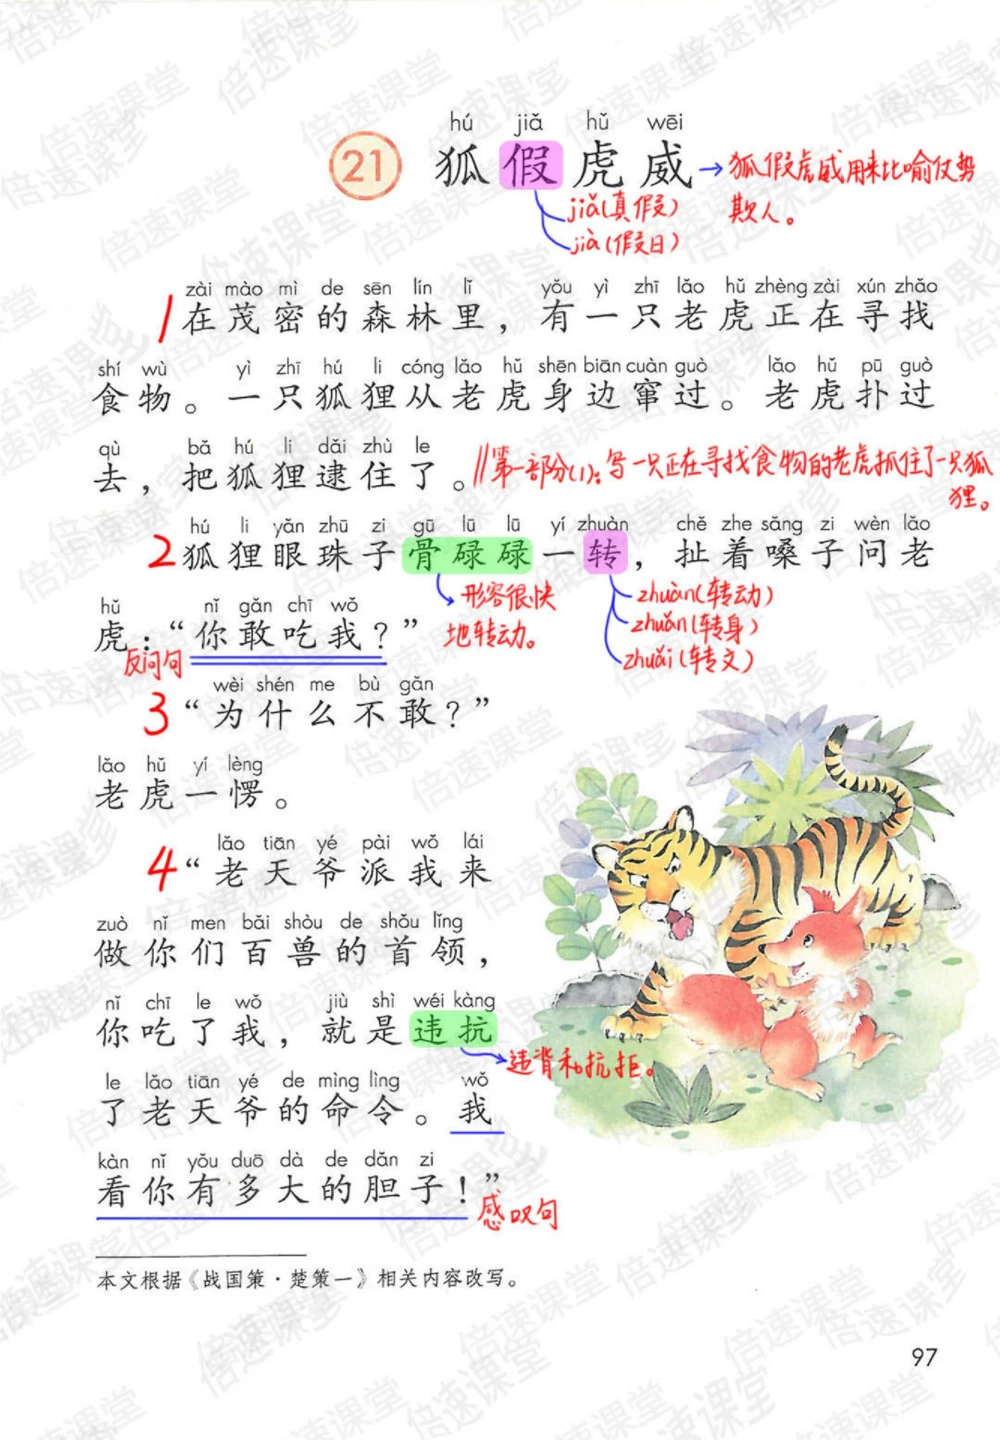 hú jiǎ hǔ wēi
21 狐假虎威
狐假虎威用来比喻仗势
欺人。
jiǎ(真假)
jià(假日)
zài mào mì de sēn lín lǐ yǒu yì zhī lǎo hǔ zhèng zài xún zhǎo
1 在茂密的森林里，有一只老虎正在寻找
shí wù yì zhī hú li cóng lǎo hǔ shēn biān cuàn guò lǎo hǔ pū guò
食物。一只狐狸从老虎身边窜过。老虎扑过
qù bǎ hú li dǎi zhù le
去，把狐狸逮住了。
//第一部分(1)：写一只正在寻找食物的老虎抓住了一只狐
狸。
hú li yǎn zhū zi gū lū lū yí zhuàn chě zhe sǎng zi wèn lǎo
2 狐狸眼珠子骨碌碌一转，扯着嗓子问老
形容很快
地转动。
zhuàn(转动)
zhuǎn(转身)
zhuǎi(转文)
hǔ nǐ gǎn chī wǒ
虎：“你敢吃我？”
反问句
wèi shén me bù gǎn
3 “为什么不敢？”
lǎo hǔ yí lèng
老虎一愣。
lǎo tiān yé pài wǒ lái
4 “老天爷派我来
zuò nǐ men bǎi shòu de shǒu lǐng
做你们百兽的首领，
nǐ chī le wǒ jiù shì wéi kàng
你吃了我，就是违抗
违背和抗拒。
le lǎo tiān yé de mìng lìng wǒ
了老天爷的命令。我
kàn nǐ yǒu duō dà de dǎn zi
看你有多大的胆子！”
感叹句
本文根据《战国策·楚策一》相关内容改写。
97
倍速课堂